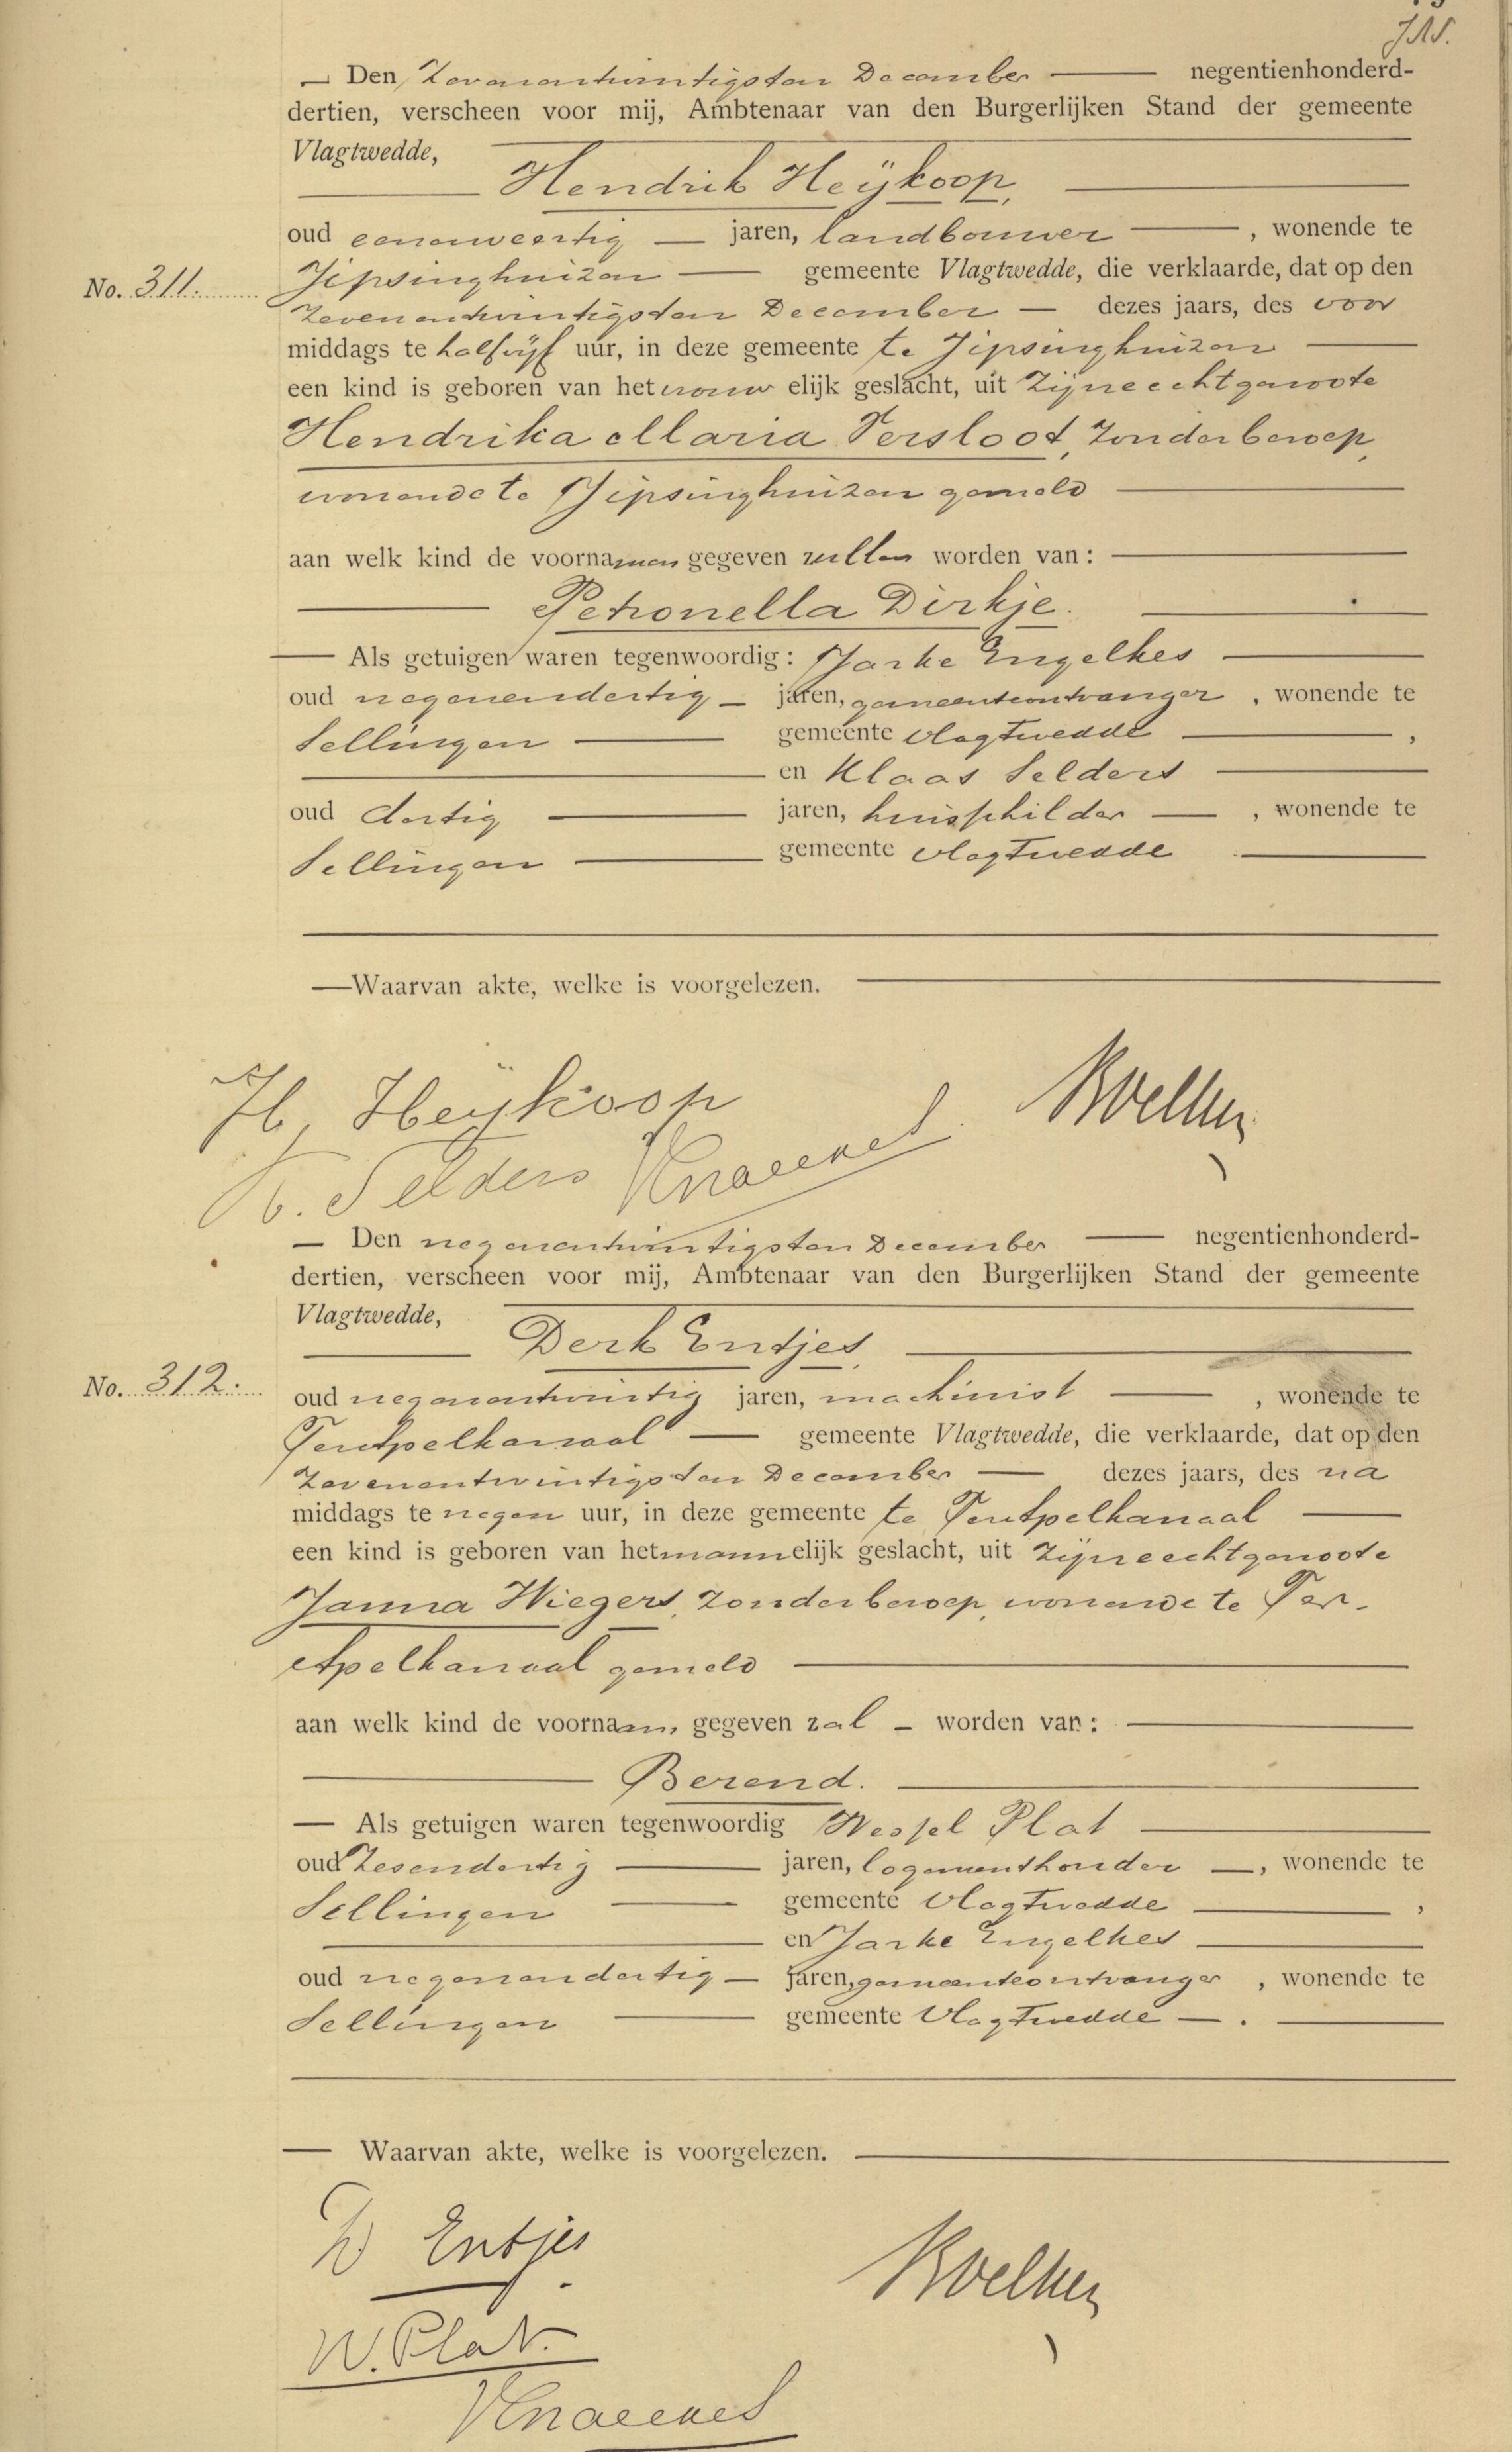 — Den Zevenentwintigsten December — negentienhonderd-
dertien, verscheen voor mij, Ambtenaar van den Burgerlijken Stand der gemeente
Vlagtwedde,
Hendrik Heijkoop,
oud eenenveertig — jaren, landbouwer —, wonende te
No. 311. Jipsinghuizen — gemeente Vlagtwedde, die verklaarde, dat op den
zevenentwintigsten December — dezes jaars, des voor
middags te halfvijf uur, in deze gemeente te Jipsinghuizen —
een kind is geboren van het vrouwelijk geslacht, uit zijne echtgenoote
Hendrika Maria Versloot, zonder beroep,
wonende te Jipsinghuizen gemeld —
aan welk kind de voornamen gegeven zullen worden van: —
Petronella Dirkje.
— Als getuigen waren tegenwoordig: Jarke Engelkes —
oud negenendertig — jaren, gemeenteontvanger, wonende te
Sellingen — gemeente Vlagtwedde —,
en Klaas Selders —
oud dertig — jaren, huisschilder —, wonende te
Sellingen — gemeente Vlagtwedde —
—Waarvan akte, welke is voorgelezen. —
H, Heijkoop
K. Selders
— Den negenentwintigsten December — negentienhonderd-
dertien, verscheen voor mij, Ambtenaar van den Burgerlijken Stand der gemeente
Vlagtwedde,
Derk Entjes,
No. 312. oud negenentwintig jaren, machinist —, wonende te
Terapelkanaal — gemeente Vlagtwedde, die verklaarde, dat op den
zevenentwintigsten December — dezes jaars, des na
middags te negen uur, in deze gemeente te Terapelkanaal —
een kind is geboren van het mannelijk geslacht, uit zijne echtgenoote
Janna Wiegers, zonder beroep, wonende te Ter-
apelkanaal gemeld —
aan welk kind de voornaam, gegeven zal — worden van: —
Berend.
— Als getuigen waren tegenwoordig Wessel Plat —
oud zesendertig — jaren, logementhouder —, wonende te
Sellingen — gemeente Vlagtwedde —,
en Jarke Engelkes —
oud negenendertig — jaren, gemeenteontvanger, wonende te
Sellingen — gemeente Vlagtwedde —.
— Waarvan akte, welke is voorgelezen. —
D Entjes
W. Plat.